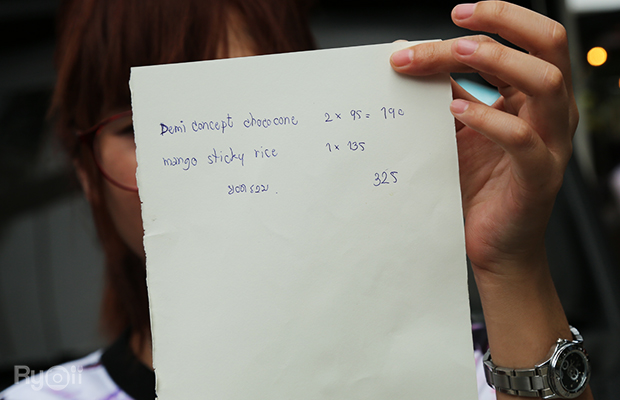 Demi concept chococone 2 x 95 = 190
mango sticky rice 1 x 135
ยอดรวม 325
Ryoii